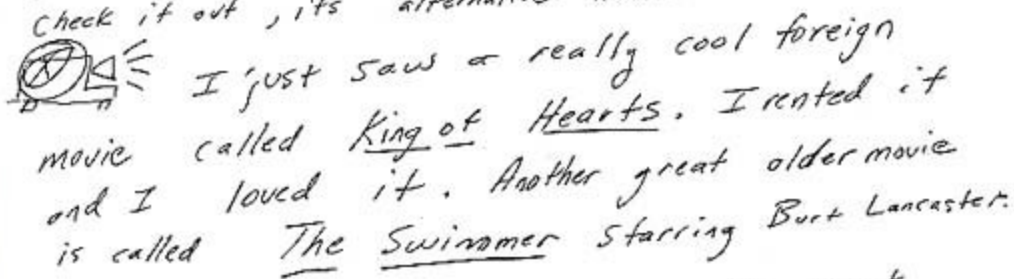 check it out, its alternative
I just saw a really cool foreign
movie called King of Hearts. I rented it
and I loved it. Another great older movie
is called The Swimmer starring Burt Lancaster.